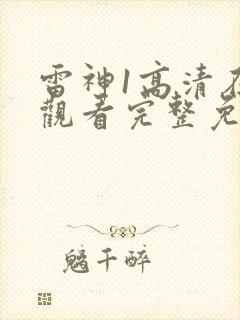 雷神1高清
觀看完整免
鬼千醉